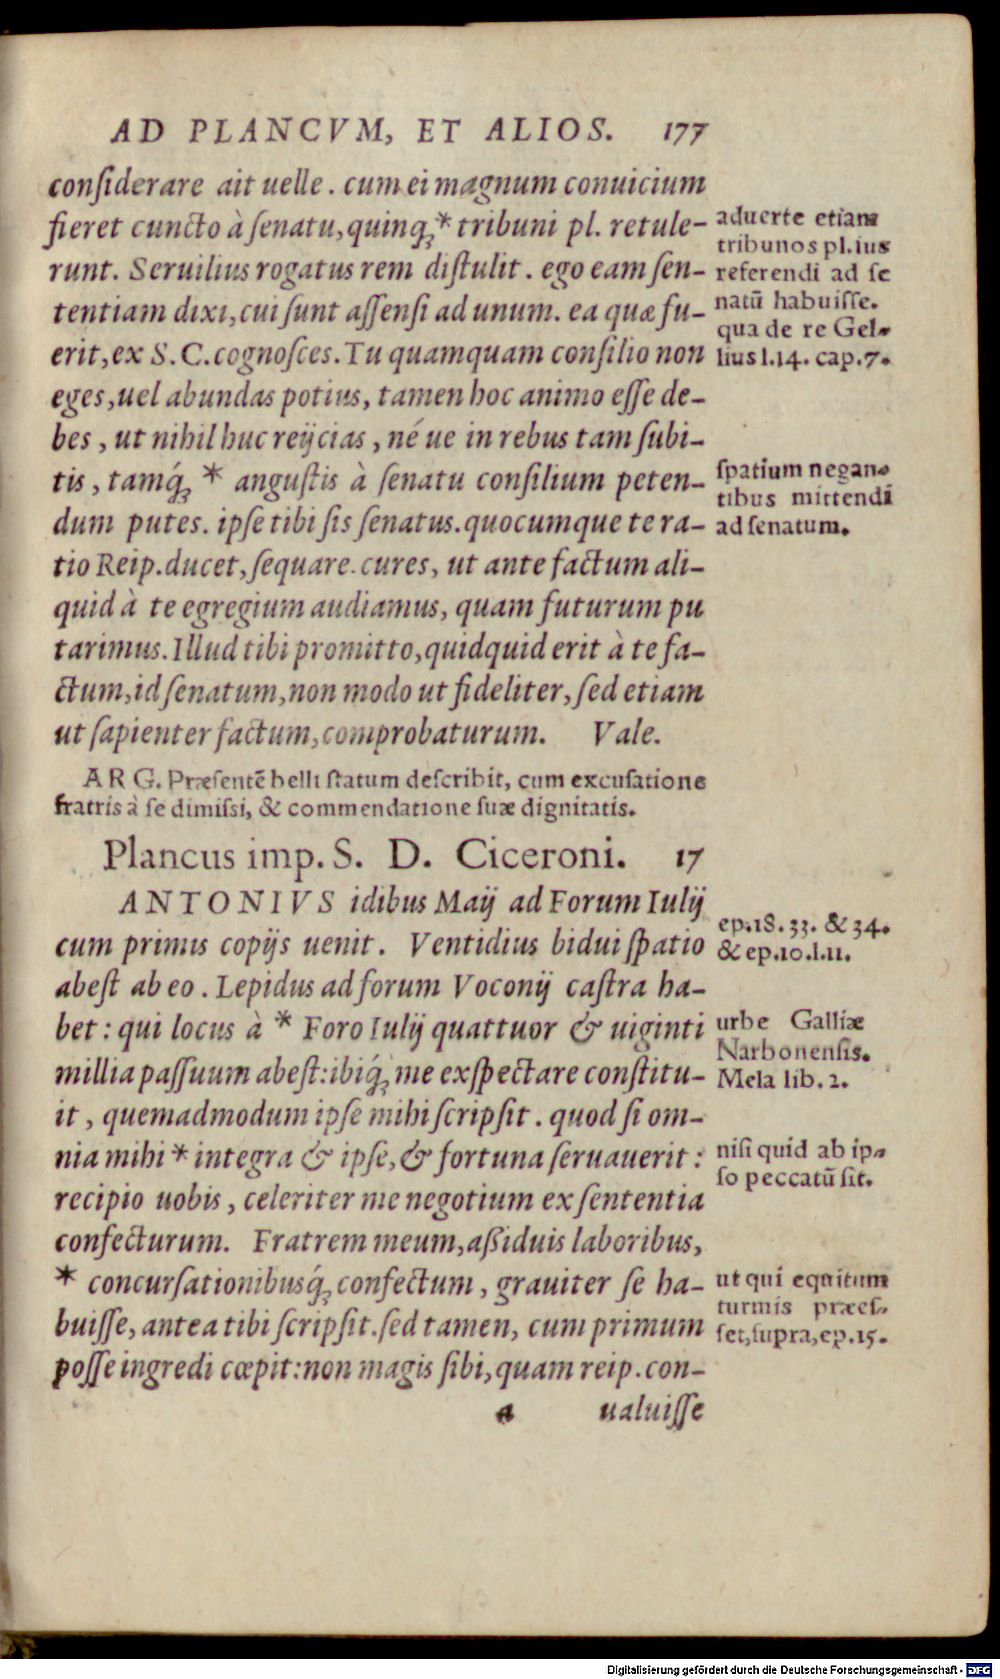 AD PLANCVM, ET ALIOS. 177
considerare ait uelle. cum ei magnum conuicium
fieret cuncto à senatu, quinq;* tribuni pl. retule-
runt. Seruilius rogatus rem distulit. ego eam sen-
tentiam dixi, cui sunt assensi ad unum. ea quæ fu-
erit, ex S. C. cognosces. Tu quamquam consilio non
eges, uel abundas potius, tamen hoc animo esse de-
bes, ut nihil huc reijcias, né ue in rebus tam subi-
tis, tamq́; * angustis à senatu consilium peten-
dum putes. ipse tibi sis senatus. quocumque te ra-
tio Reip. ducet, sequare. cures, ut ante factum ali-
quid à te egregium audiamus, quam futurum pu
tarimus. Illud tibi promitto, quidquid erit à te fa-
ctum, id senatum, non modo ut fideliter, sed etiam
ut sapienter factum, comprobaturum. Vale.
aduerte etiam
tribunos pl. ius
referendi ad se
natū habuisse.
qua de re Gel-
lius l.14. cap.7.
spatium negan-
tibus mittendi
ad senatum.
ARG. Præsentē belli statum describit, cum excusatione
fratris à se dimissi, & commendatione suæ dignitatis.
Plancus imp. S. D. Ciceroni. 17
ANTONIVS idibus Maij ad Forum Iulij
cum primis copijs uenit. Ventidius bidui spatio
abest ab eo. Lepidus ad forum Voconij castra ha-
bet: qui locus à * Foro Iulij quattuor & uiginti
millia passuum abest: ibiq́; me exspectare constitu-
it, quemadmodum ipse mihi scripsit. quod si om-
nia mihi * integra & ipse, & fortuna seruauerit:
recipio uobis, celeriter me negotium ex sententia
confecturum. Fratrem meum, aßiduis laboribus,
* concursationibusq́; confectum, grauiter se ha-
buisse, antea tibi scripsit. sed tamen, cum primum
posse ingredi cœpit: non magis sibi, quam reip. con-
ep.18. 33. & 34.
& ep.10. l.11.
urbe Galliæ
Narbonensis.
Mela lib. 2.
nisi quid ab ip-
so peccatū sit.
ut qui equitum
turmis præes-
set, supra, ep. 15.
a ualuisse
Digitalisierung gefördert durch die Deutsche Forschungsgemeinschaft - DFG